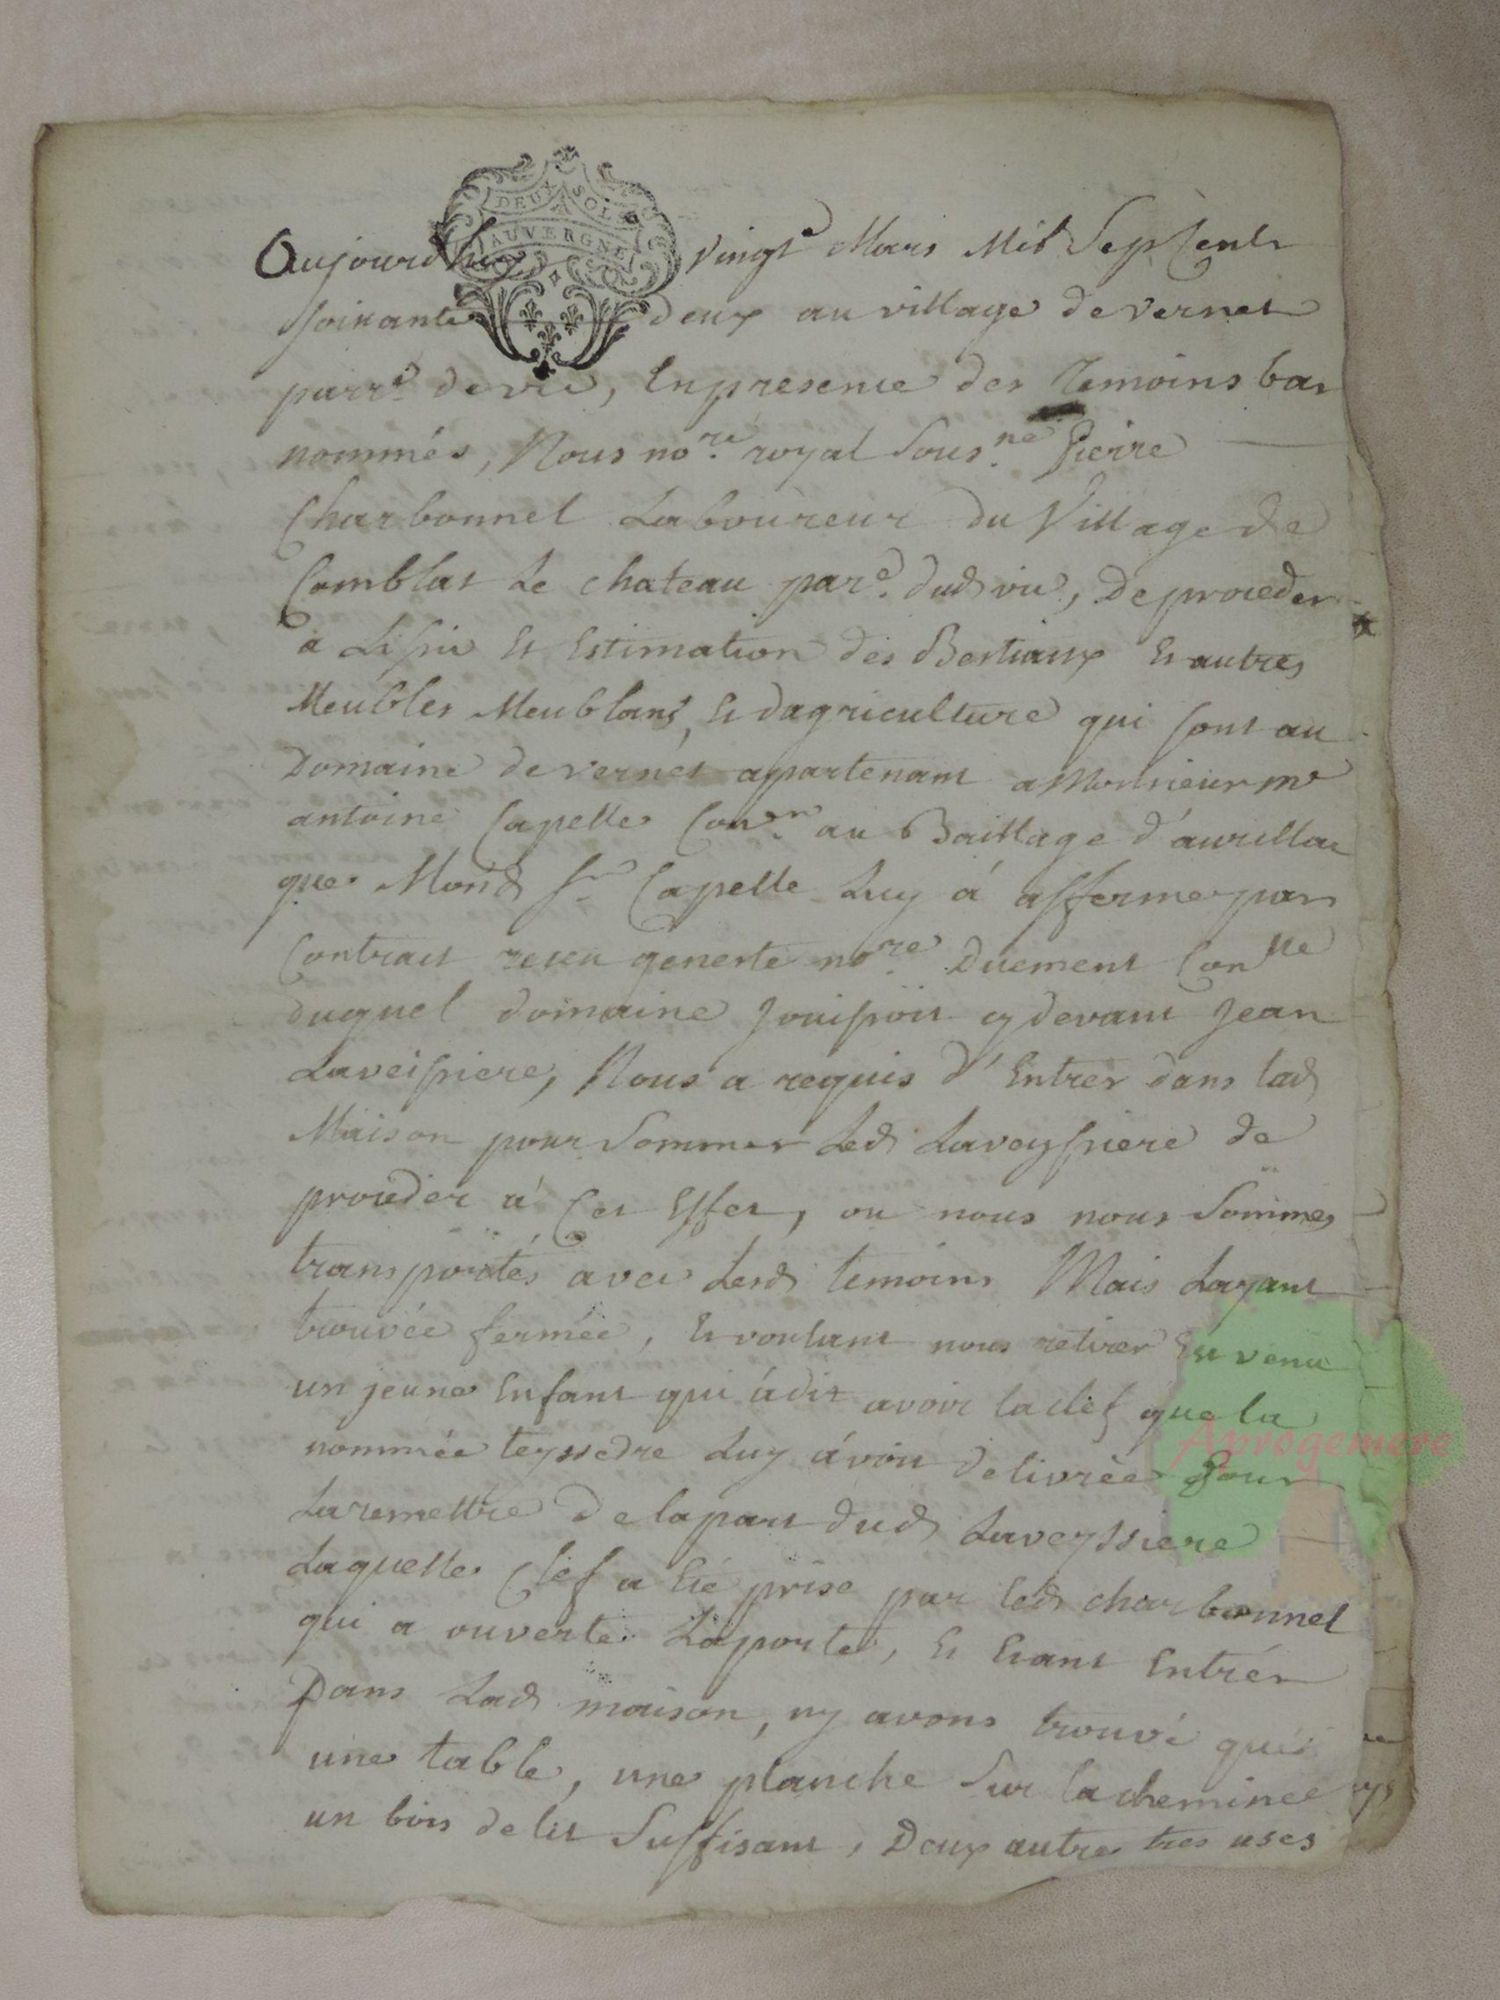 DEUX SOLS
AUVERGNE
Aujourdhuy vingte Mars Mil Sept Cents
soixante deux au village de vernet
parre. de vic, En presence des temoins bas
nommés, Nous nore. royal sousne. Pierre
Charbonnel Laboureur du Village de
Comblat Le chateau pare. dud vic, De proceder
a Lisrie Et Estimation des Bestiaux Et autres
Meubles Meublans, Et dagriculture qui sont au
Domaine de vernet apartenant a Monsieur me
antoine Capelle Conser. au Baillage d'aurillac
que Mond Sr. Capelle Luy á affermé par
Contract receu nore. Duement Conlle
duquel domaine Jouissoit cy devant Jean
Laveissiere, Nous a requis d'Entrer dans lad
Maison pour Sommer Led Laveyssiere de
proceder á Cet Effet, ou nous nous Sommes
transportés avec Lesd temoins Mais Layant
trouvée fermée, Et voulant nous retirer Est venu
un jeune Enfant qui á dit avoir la clef que la
nommée teyssedre Luy ávoit delivrée pour
La remettre De la part dud Laveyssiere
Laquelle Clef a Eté prise par led charbonnel
qui a ouverte La porte, Et Etant Entrér
Dans Lad maison, ny avons trouvé que
une table, une planche Sur la cheminée
un bois de lit Suffisant, Deux autres tres usés
Aprogemere